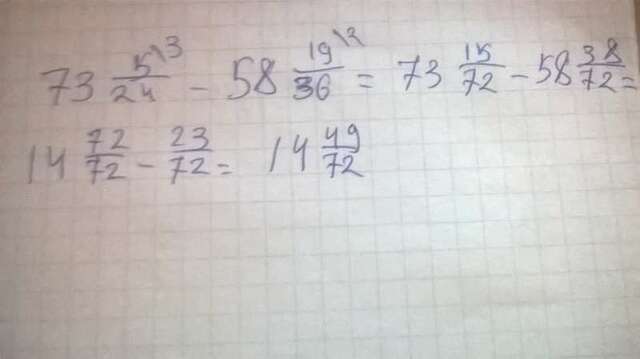 73 5\3/24 - 58 19\2/36 = 73 15/72 - 58 38/72 =
14 72/72 - 23/72 = 14 49/72